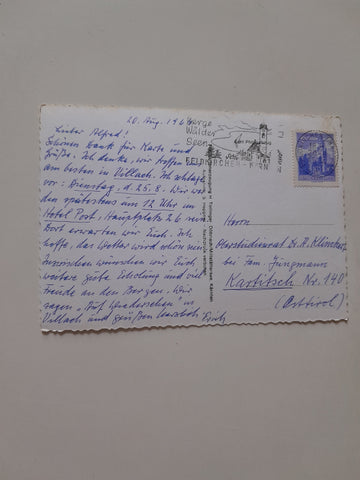 20. Aug. 196
Lieber Alfred!
Schönen Dank für Karte und
Grüße. Ich denke, wir treffen uns
am besten in Villach. Ich schlage
vor: Dienstag, d. 25.8. Wir werden
spätestens um 12 Uhr im
Hotel Post, Hauptplatz 26 sein
Dort erwarten wir Euch. Ich
hoffe, das Wetter wird schön sein.
Inzwischen wünschen wir Euch
weitere gute Erholung und viel
Freude an den Bergen. Wir
sagen „Auf Wiedersehen" in
Villach und grüßen herzlich
Erich
Berge
Wälder
Seen
FELDKIRCHEN KÄRNTEN
Herrn
Oberstudienrat Dr. A. Klinker
bei Fam. Jungmann
Kartitsch Nr. 140
(Osttirol)